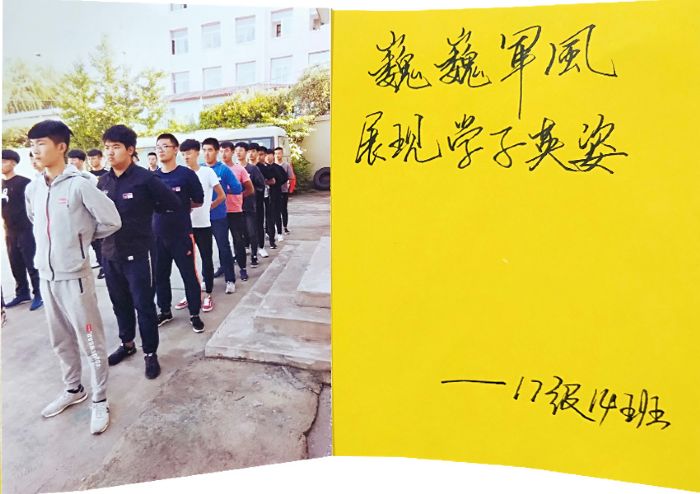 巍巍軍風
展现学子英姿
——17级14班